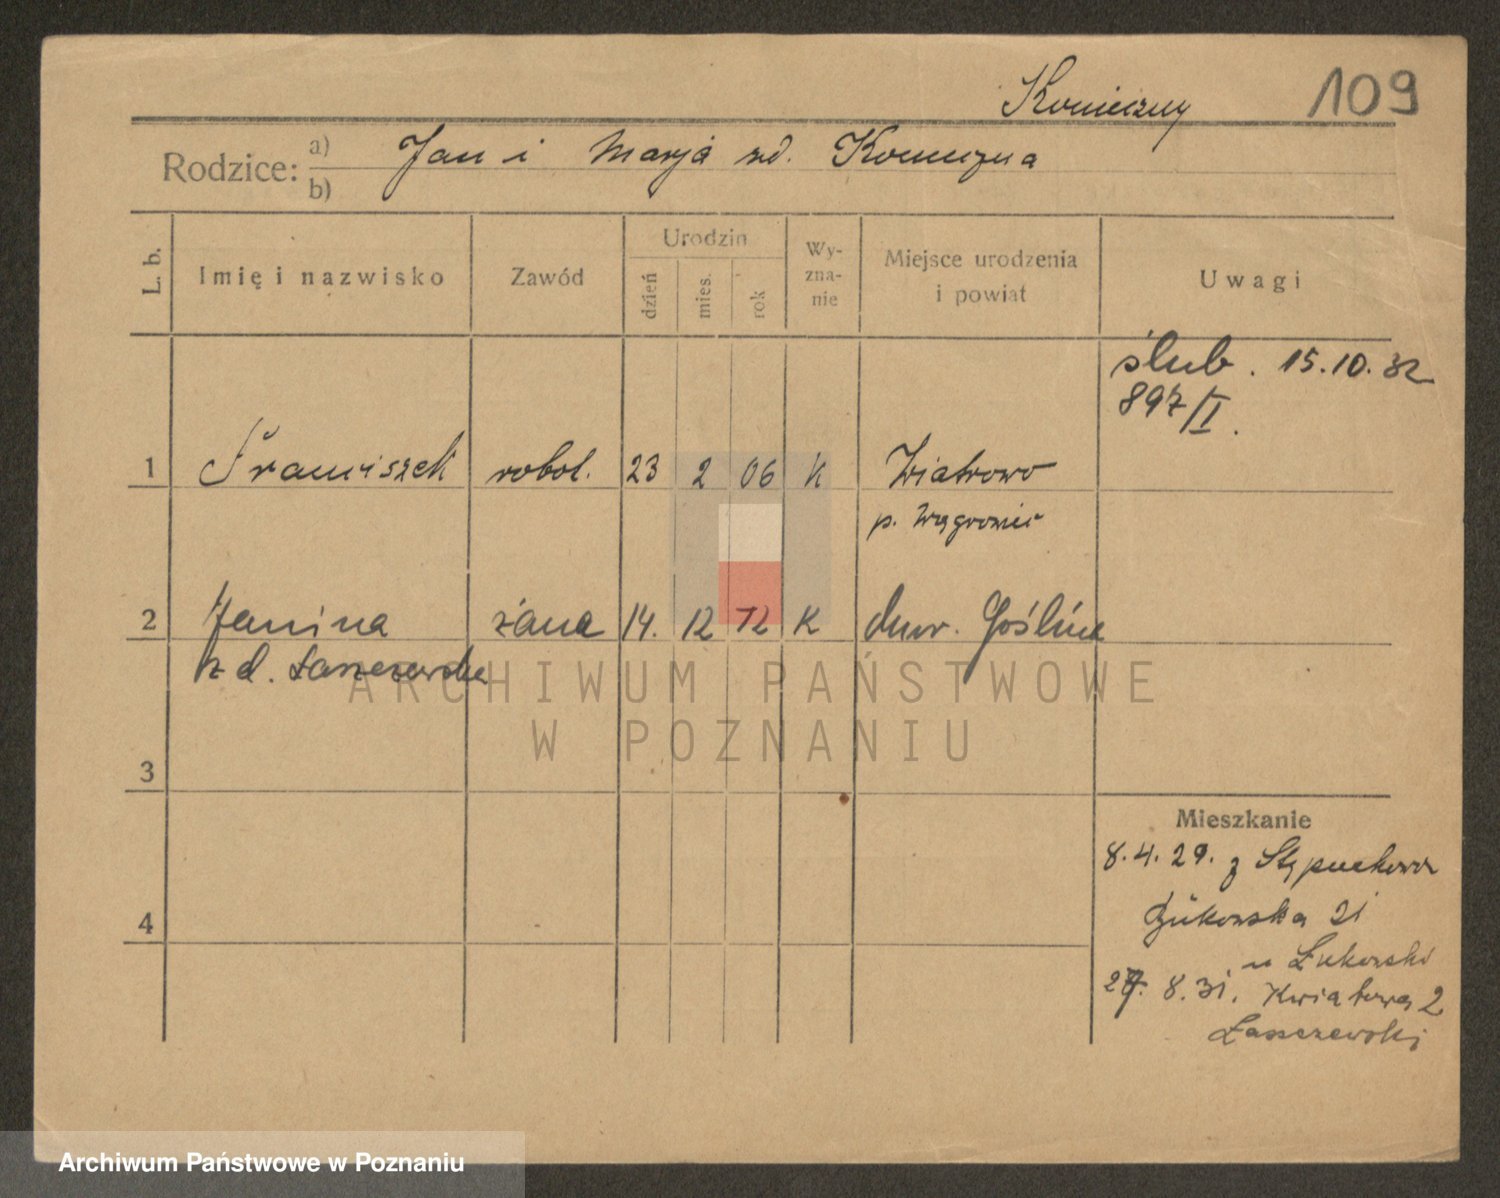 Konieczny 109
Rodzice: a) b) Jan i Marja zd. Konieczna
L. b.
Imię i nazwisko
Zawód
Urodzin
dzień
mies.
rok
Wy-
zna-
nie
Miejsce urodzenia
i powiat
Uwagi
ślub. 15.10.32
897/I.
1 Franciszek robot. 23 2 06 K Wiatrowo
p. Wągrowiec
2 Janina żona 14. 12 12 K Mur. Goślina
z d. Łaszczewska
3
4
Mieszkanie
8.4.29. z Stępuchowa
Bukowska 21
u Łukowski
27. 8.31. Kwiatowa 2
Łaszczewski
ARCHIWUM PAŃSTWOWE
W POZNANIU
Archiwum Państwowe w Poznaniu